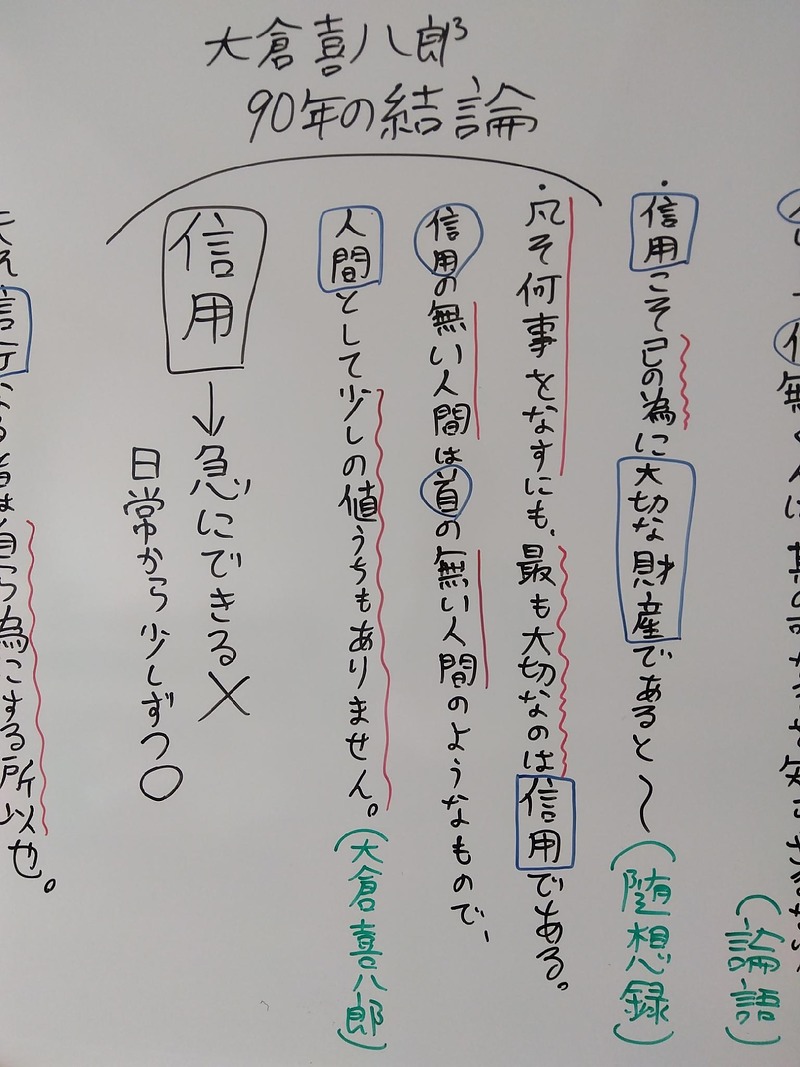 大倉喜八郎
90年の結論
無くんば其の可なるを知らざるなり
(論語)
・信用こそ己の為に大切な財産であると〜
(随想録)
・凡そ何事をなすにも、最も大切なのは信用である。
信用の無い人間は首の無い人間のようなもので、
人間として少しの値うちもありません。
(大倉喜八郎)
信用
→急にできる×
日常から少しずつ○
なる者は自らの為にする所以也。